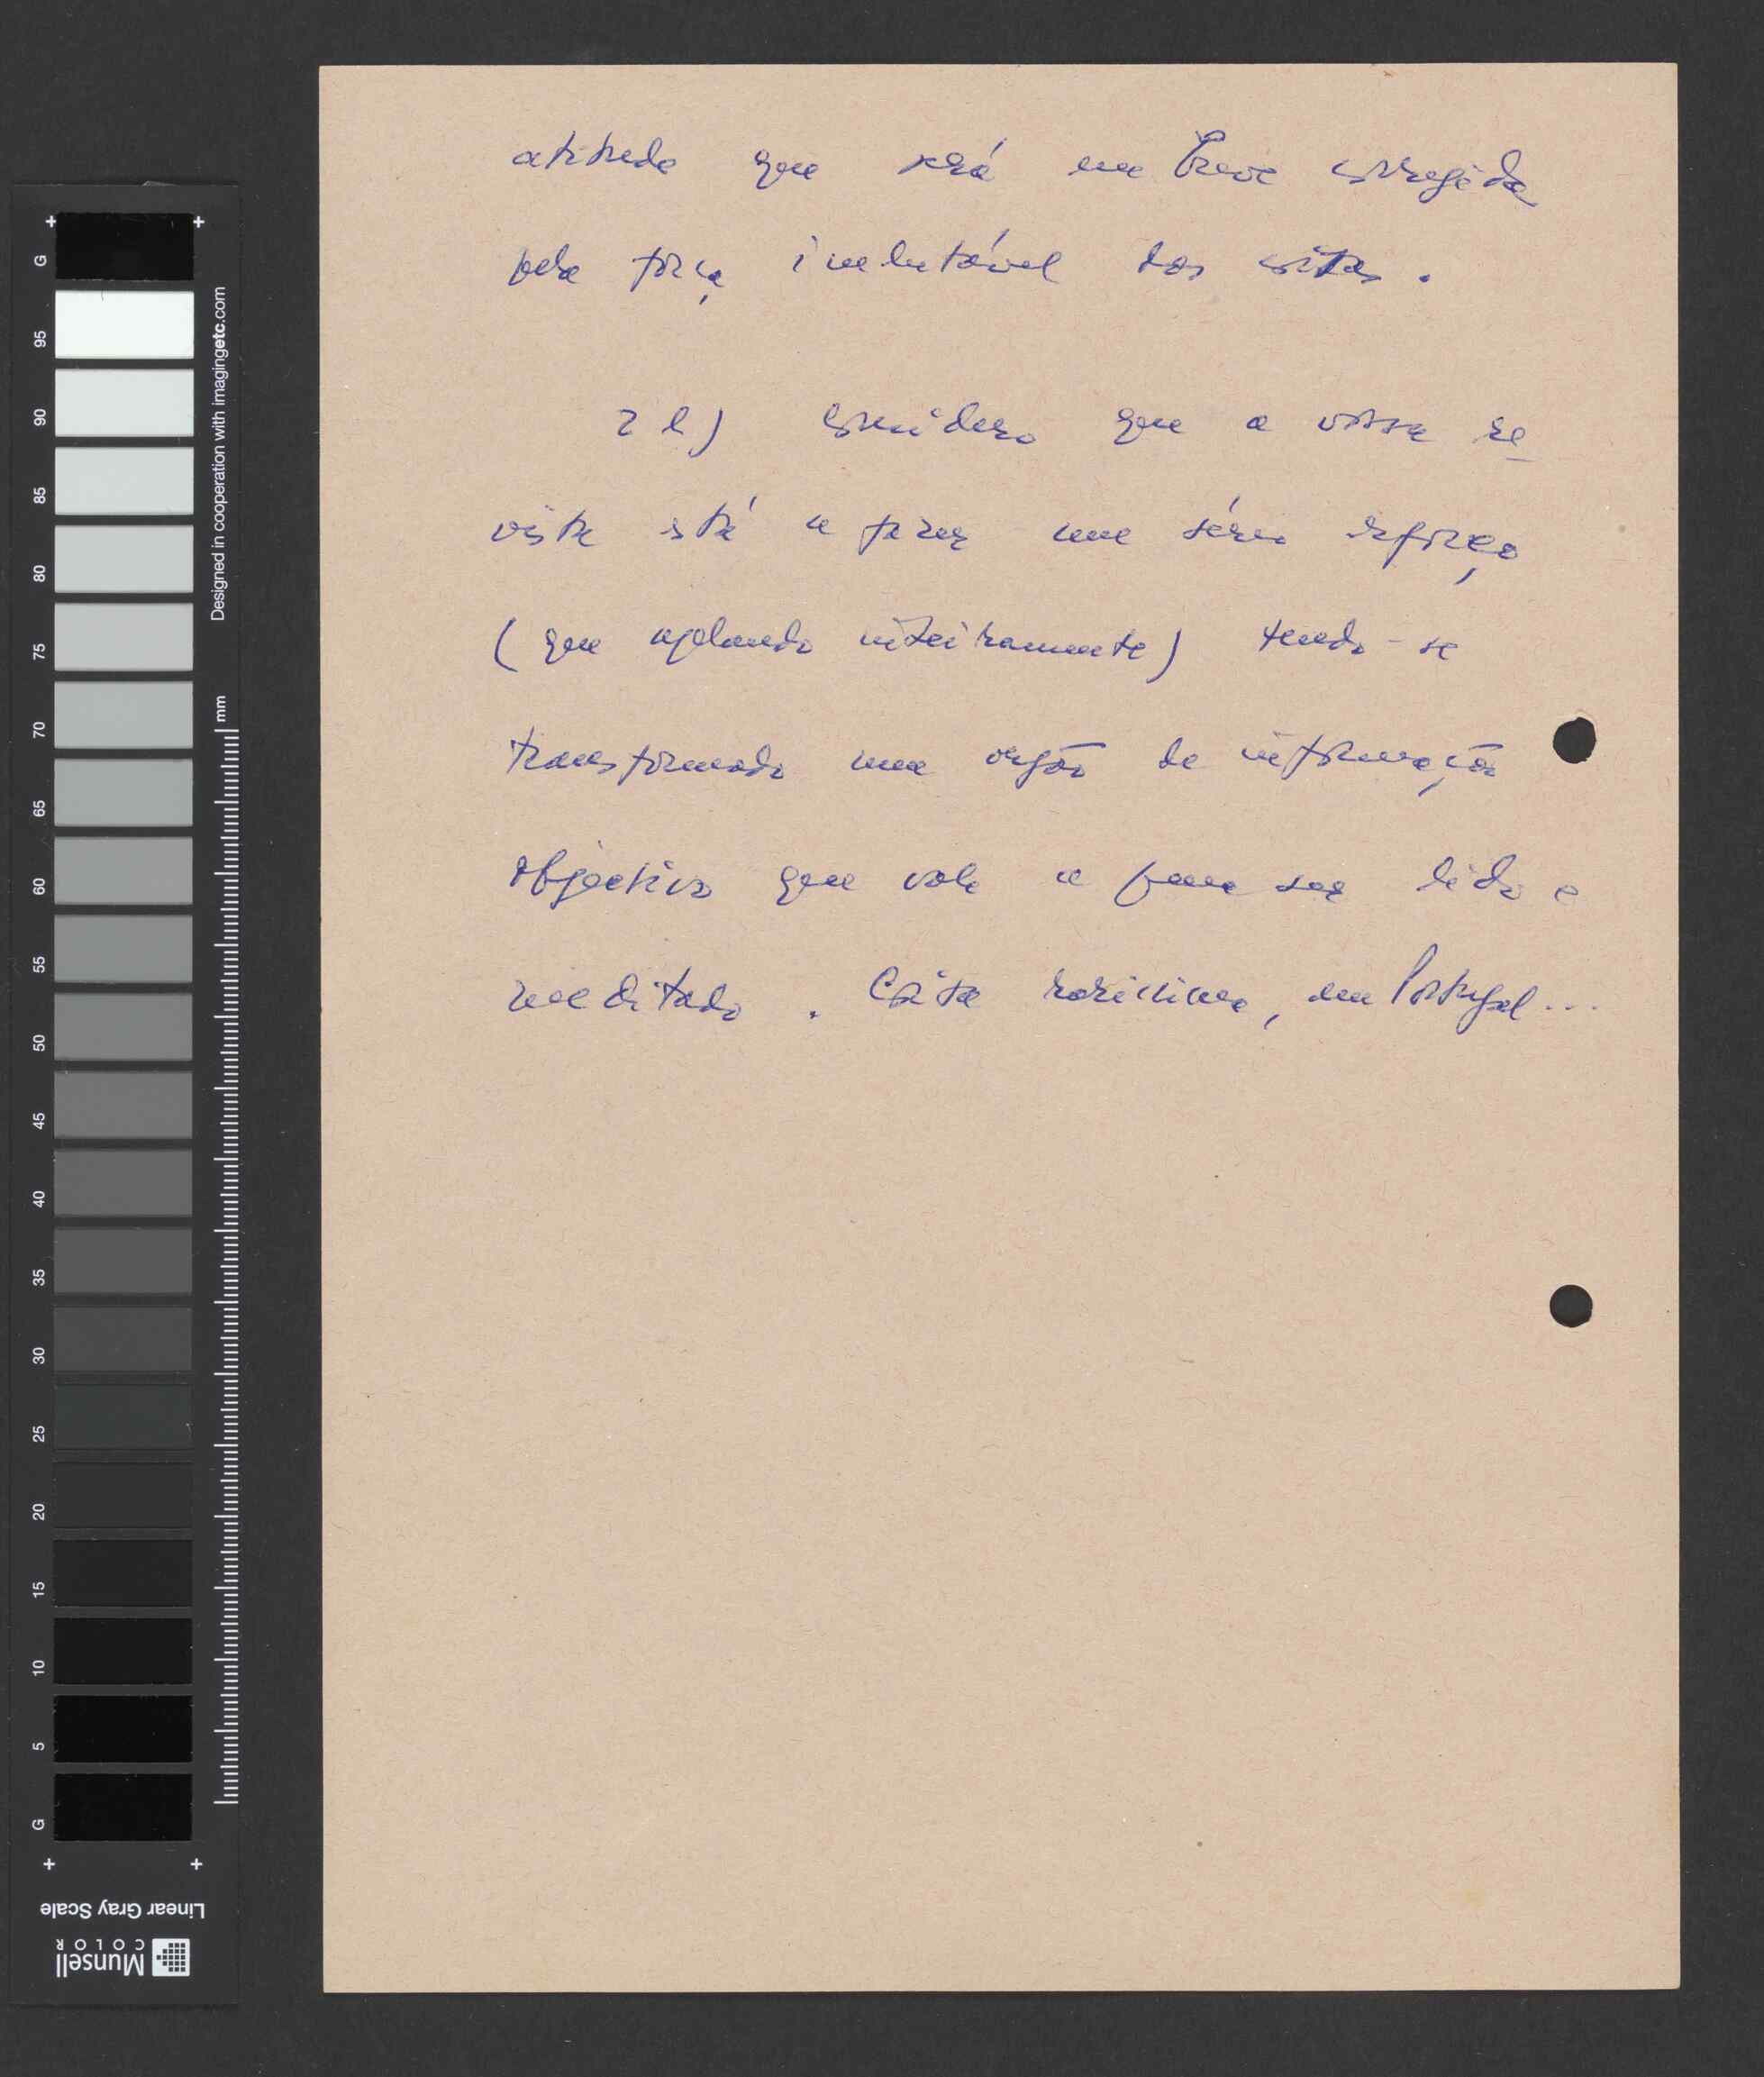 atitude que será em breve corrigida
pela força inelutável das coisas.
2 a) Considero que a vossa re
vista está a fazer um sério esforço
(que aplaudo inteiramente) tendo-se
transformado num orgão de informação
objectiva que vale a pena ser lido e
meditado. Coisa raríssima, em Portugal...
G
95
90
85
80
75
70
65
60
55
50
45
40
35
30
25
20
15
10
5
G
Designed in cooperation with imagingetc.com
mm
Linear Gray Scale
Munsell
COLOR